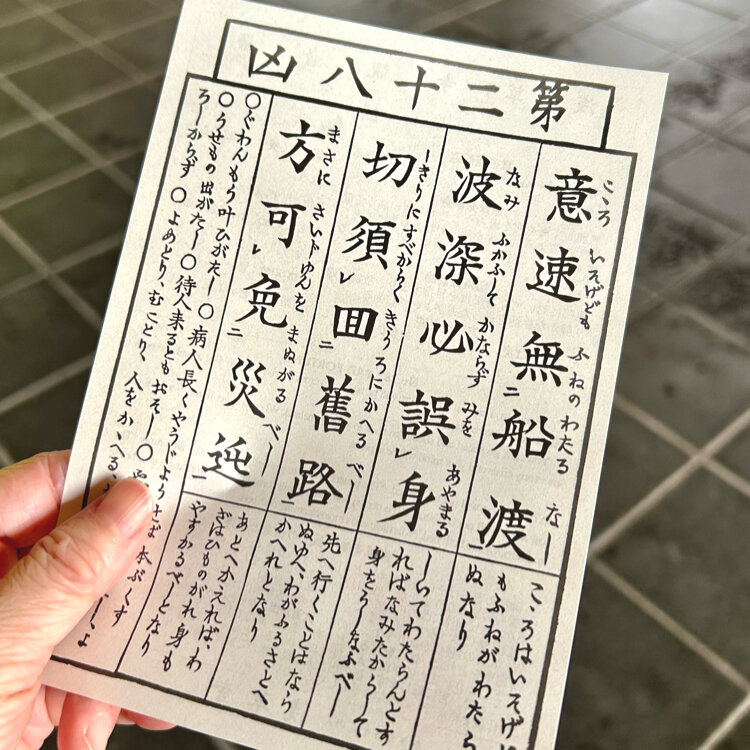 第二十八凶
こゝろ いそげども ふねの わたる なし
意速無二船渡一
こゝろはいそげど
もふねがわたら
ぬなり
なみ ふかふして かならず みを あやまる
波深必誤レ身
しいてわたらんとす
ればなみたかふして
身をうしなふべし
しきりにすべからく きうろにかへる べし
切須レ囬二舊路一
先へ行くことはなり
ぬゆへ、わがふるさとへ
かへれとなり
まさに さいじゆんを まぬがる べし
方可レ免二災迍一
あとへかえれば、わ
ざはひものがれ身も
やすかるべしとなり
○ぐわんもう叶ひがたし○病人長くやうじようせば本ぶくす
○うせもの出がたし○待人来るともおそし○
ろしからず○よめとり、むことり、人をかゝへる